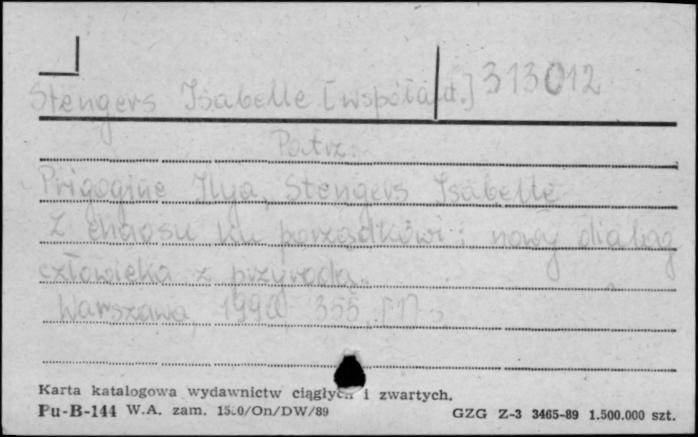 Stengers Isabelle [współaut.] 313012
Patrz:
Prigogine Ilya, Stengers Isabelle
Z chaosu ku porządkowi : nowy dialog
człowieka z przyrodą.
Warszawa, 1990, 355, [1] s.
Karta katalogowa wydawnictw ciągłych i zwartych.
Pu-B-144 W.A. zam. /On/DW/89 GZG Z-3 3465-89 1.500.000 szt.